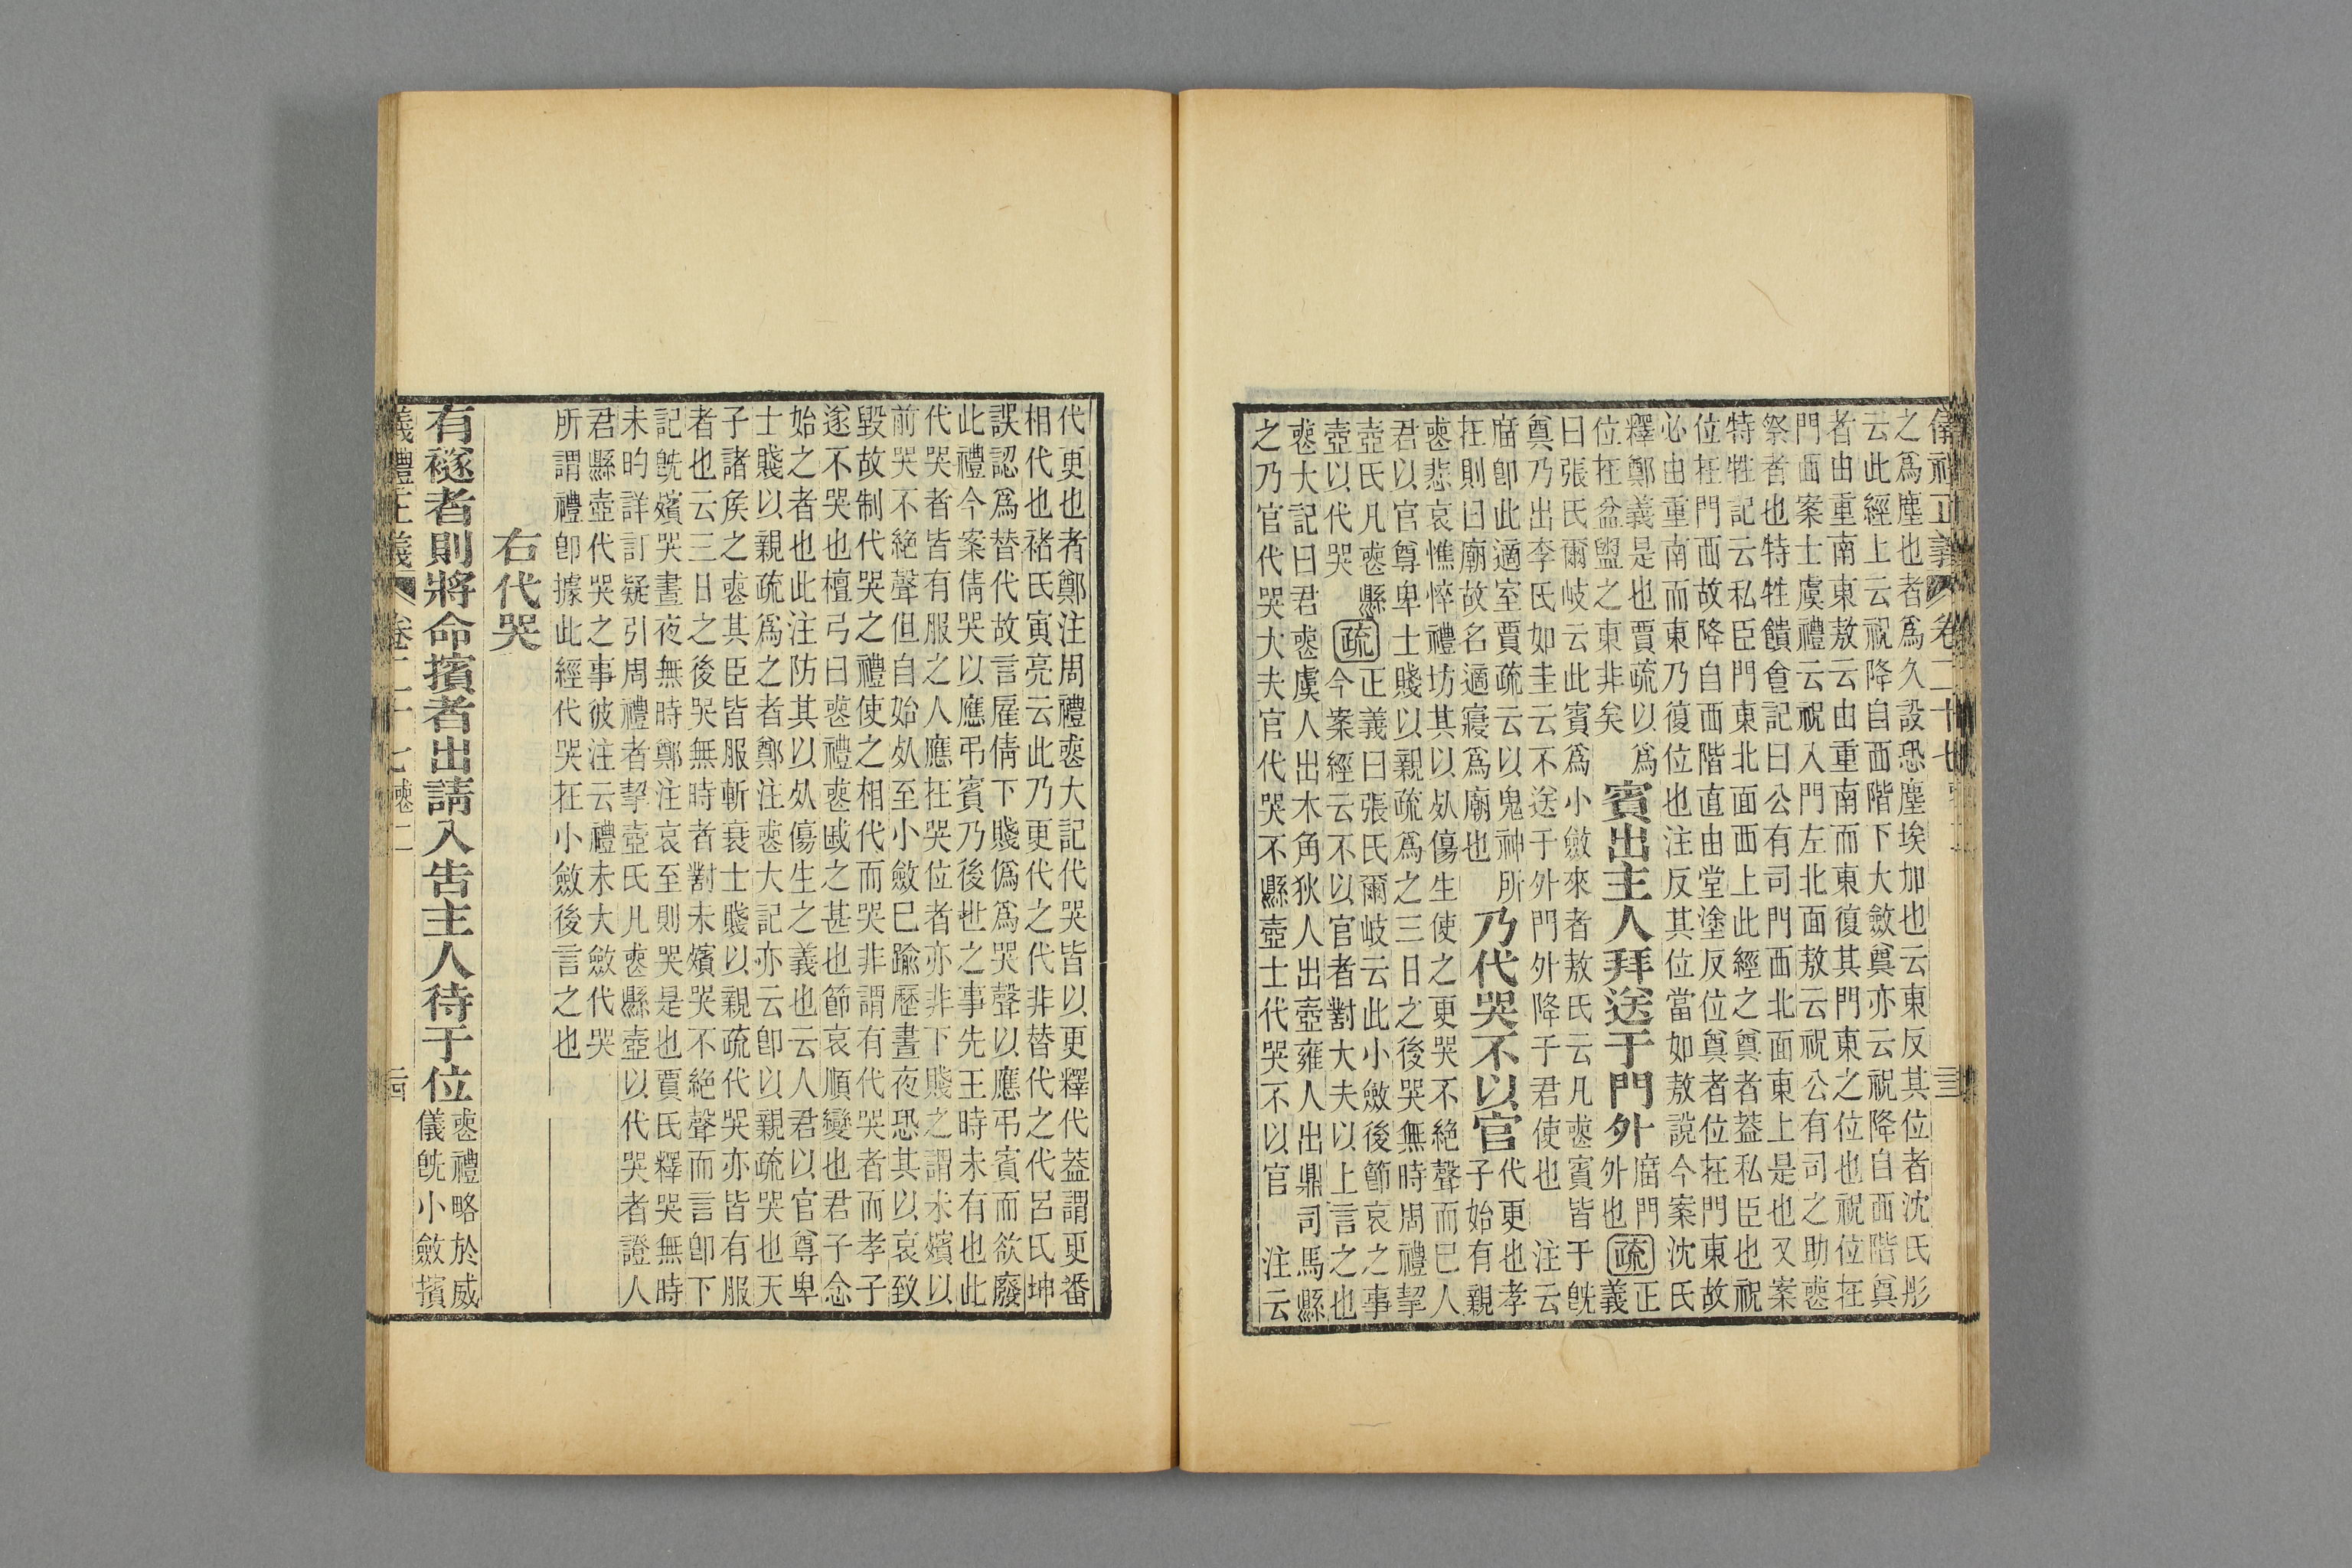 儀禮正義 卷二十七 喪二
之為塵也者為久設恐塵埃加也云東反其位者沈氏彤
云此經上云祝降自西階下大斂奠亦云祝降自西階奠
者由重南東敖云由重南而東復其門東之位也祝位在
門西案士虞禮云祝入門左北面敖云祝公有司之助喪
祭者也特牲饋食記曰公有司門西北面東上是也又案
特牲記云私臣門東北面西上此經之奠者葢私臣也祝
位在門西故降自西階直由堂塗反位奠者位在門東故
必由重南而東乃復位也注反其位當如敖說今案沈氏
釋鄭義是也賈疏以為
位在盆盥之東非矣
賓出主人拜送于門外
廟門外也
疏
正義
曰張氏爾岐云此賓為小斂來者敖氏云凡喪賓皆于旣
奠乃出李氏如圭云不送于外門外降于君使也 注云
廟卽此適室賈疏云以鬼神所
在則曰廟故名適寢為廟也
乃代哭不以官
代更也孝
子始有親
喪悲哀憔悴禮坊其以死傷生使之更哭不絕聲而已人
君以官尊卑士賤以親疏為之三日之後哭無時周禮挈
壺氏凡喪縣
壺以代哭
疏
正義曰張氏爾岐云此小斂後節哀之事
今案經云不以官者對大夫以上言之也
喪大記曰君喪虞人出木角狄人出壺雍人出鼎司馬縣
之乃官代哭大夫官代哭不縣壺士代哭不以官 注云
代更也者鄭注周禮喪大記代哭皆以更釋代葢謂更番
相代也褚氏寅亮云此乃更代之代非替代之代呂氏坤
誤認為替代故言雇倩下賤偽為哭聲以應弔賓而欲廢
此禮今案倩哭以應弔賓乃後世之事先王時未有也此
代哭者皆有服之人應在哭位者亦非下賤之謂未殯以
前哭不絕聲但自始死至小斂已踰歷晝夜恐其以哀致
毀故制代哭之禮使之相代而哭非謂有代哭者而孝子
遂不哭也檀弓曰喪禮喪慼之甚也節哀順變也君子念
始之者也此注防其以死傷生之義也云人君以官尊卑
士賤以親疏為之者鄭注喪大記亦云卽以親疏哭也天
子諸矦之喪其臣皆服斬衰士賤以親疏代哭亦皆有服
者也云三日之後哭無時者對未殯哭不絕聲而言卽下
記旣殯哭晝夜無時鄭注哀至則哭是也賈氏釋哭無時
未昀詳訂疑引周禮者挈壺氏凡喪縣壺以代哭者證人
君縣壺代哭之事彼注云禮未大斂代哭
所謂禮卽據此經代哭在小斂後言之也
右代哭
有襚者則將命擯者出請入告主人待于位
喪禮略於威
儀旣小斂擯
儀禮正義 卷二十七 喪二